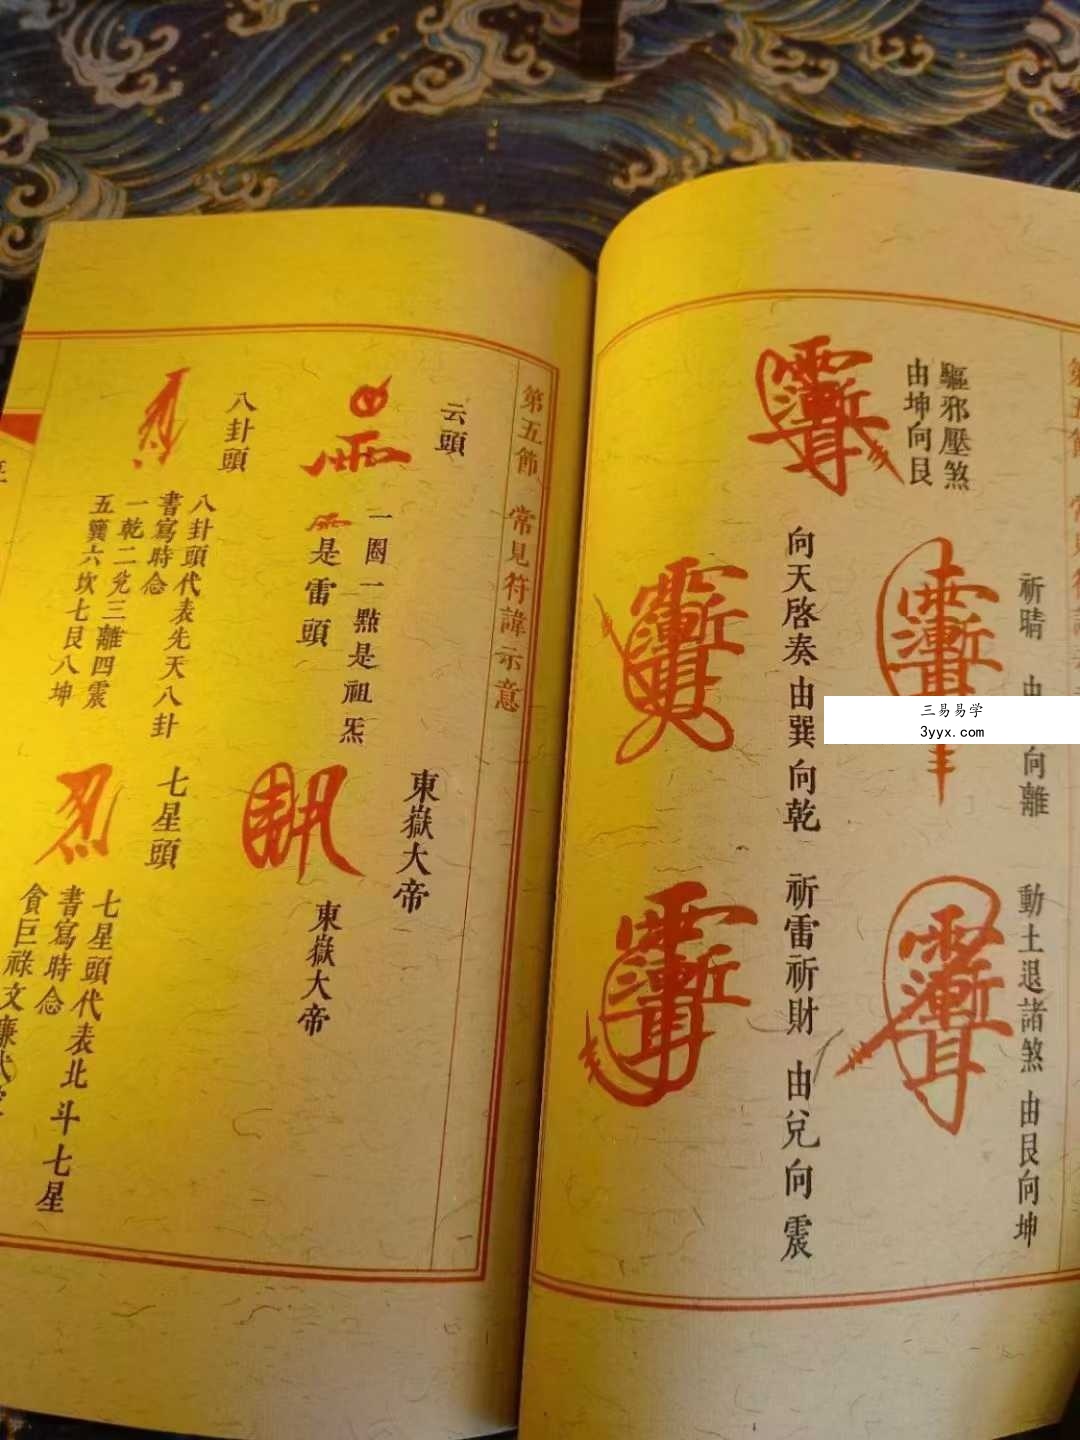 驅邪壓煞
由坤向艮
祈晴
向離
動土退諸煞 由艮向坤
向天啓奏 由巽向乾
祈雷祈財 由兌向震
三易易学
3yyx.com
第五節 常見符諱示意
云頭
一圈一點是祖炁
是雷頭
東嶽大帝
東嶽大帝
八卦頭
八卦頭代表先天八卦
書寫時念
一乾二兌三離四震
五巽六坎七艮八坤
七星頭
七星頭代表北斗七星
書寫時念
貪巨祿文廉